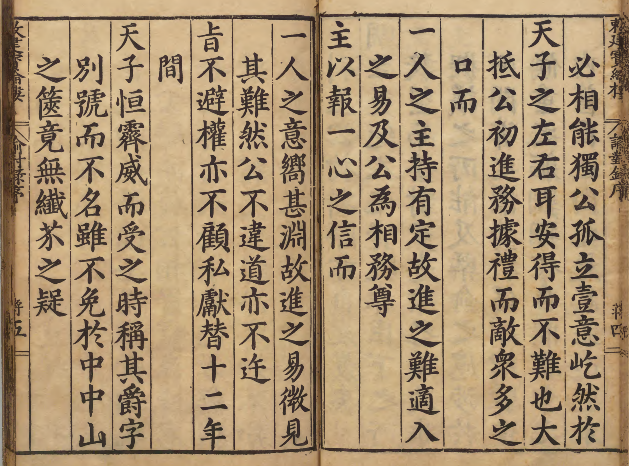 必相能獨公孤立壹意屹然於
天子之左右耳安得而不難也大
抵公初進務據禮而敵衆多之
口而
一人之主持有定故進之難適入
之易及公為相務尊
主以報一心之信而
一人之意嚮甚淵故進之易微見
其難然公不違道亦不迕
旨不避權亦不顧私獻替十二年
間
天子恒霽威而受之時稱其爵字
別號而不名雖不免於中中山
之篋竟無纖芥之疑